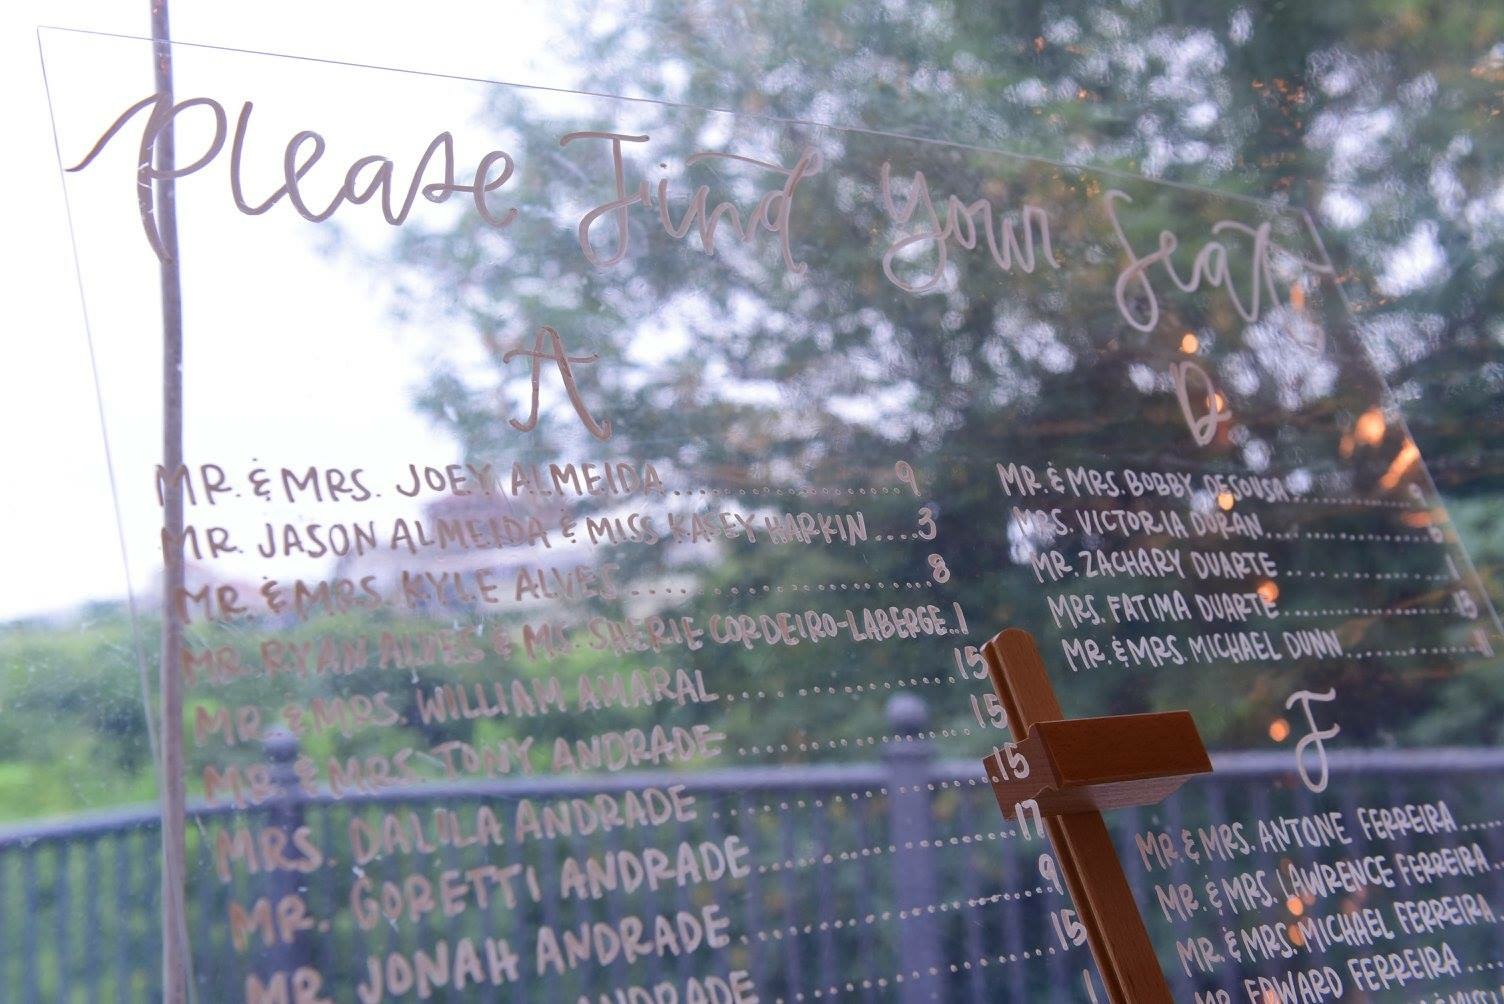 Please Find Your Seat
A
MR. & MRS. JOEY ALMEIDA..................9
MR. JASON ALMEIDA & MISS KASEY HARKIN....3
MR. & MRS. KYLE ALVES..................8
MR. RYAN ALVES & MS. SHERIE CORDEIRO-LABERGE..1
MR. & MRS. WILLIAM AMARAL..................15
MR. & MRS. TONY ANDRADE..................15
MRS. DALILA ANDRADE..................15
MR. GORETTI ANDRADE..................17
MR. JONAH ANDRADE..................9
MR. ANDRADE..................15
1
D
MR. & MRS. BOBBY DESOUSA..................
MRS. VICTORIA DORAN..................
MR. ZACHARY DUARTE..................
MRS. FATIMA DUARTE..................15
MR. & MRS. MICHAEL DUNN..................
F
MR. & MRS. ANTONE FERREIRA....
MR. & MRS. LAWRENCE FERREIRA..
MR. & MRS. MICHAEL FERREIRA..
MR. EDWARD FERREIRA....